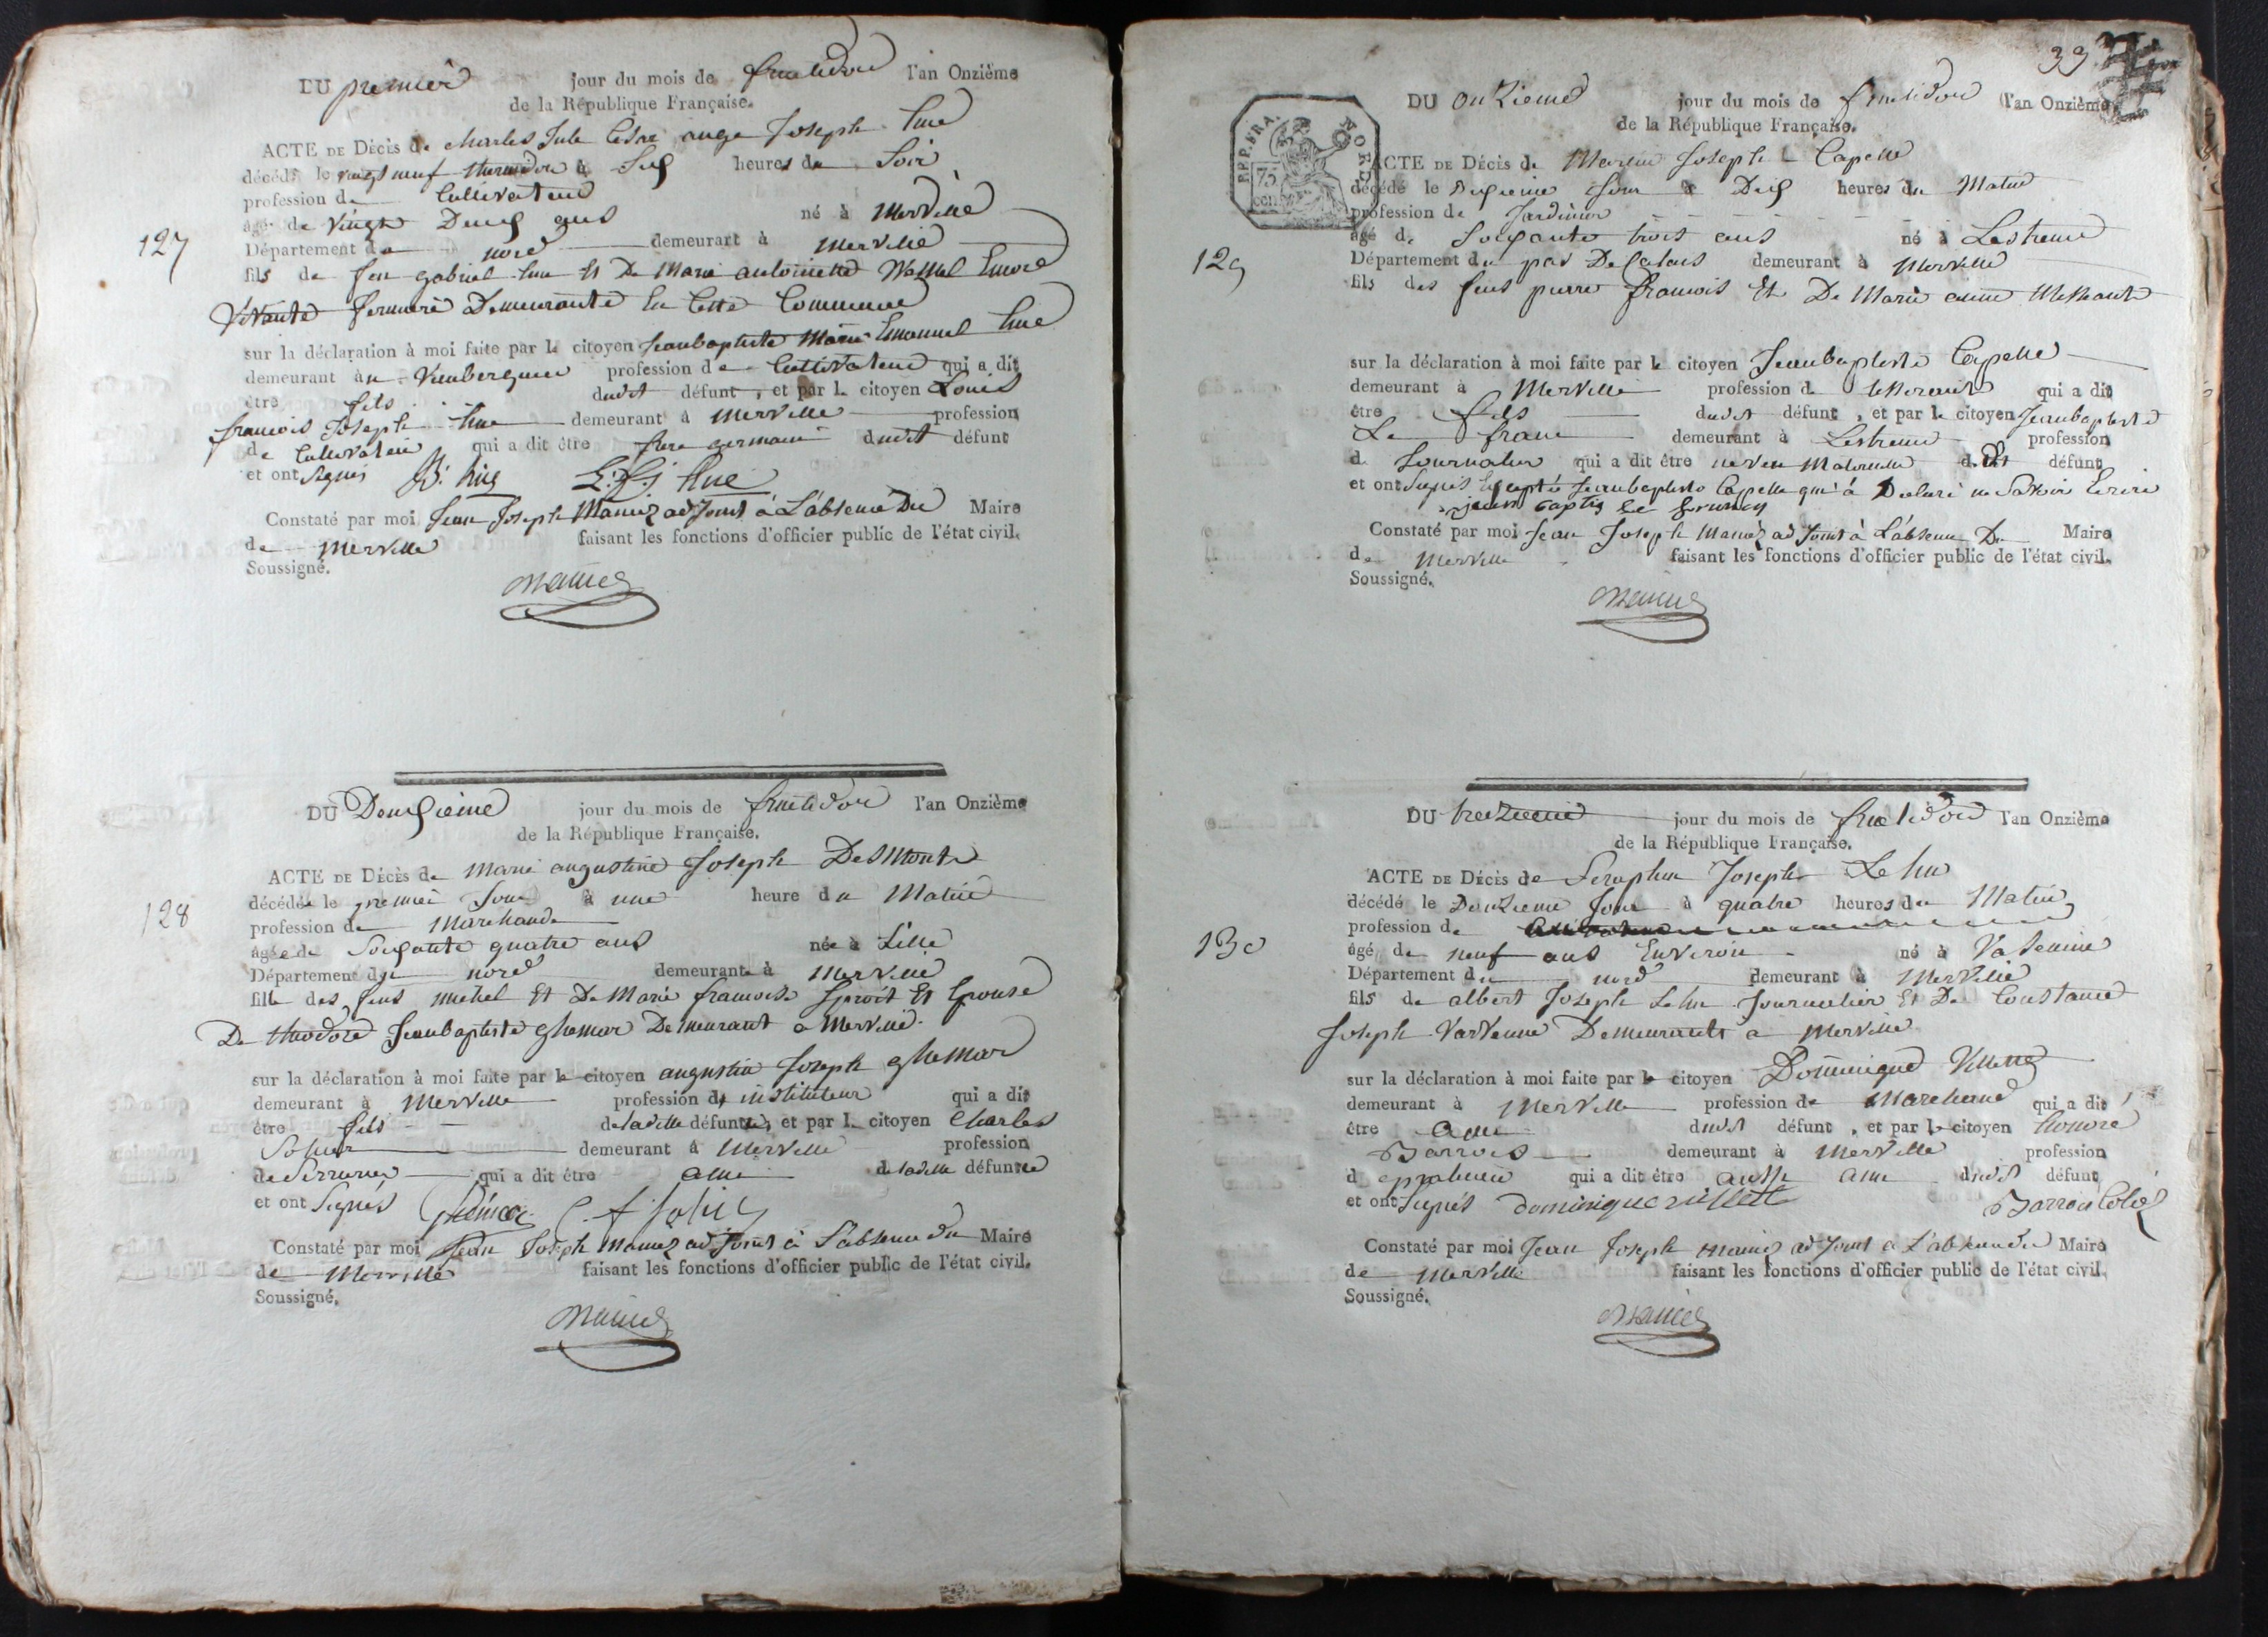 DU premier jour du mois de fructidor l'an Onzième
de la République Française.
ACTE DE DÉCÈS de Charles Jule Cesar ange Joseph hue
décédé le vingt neuf thermidor à Six heures du Soir
profession de Cultivateur
âgé de Vingt Deux ans né à Merville
127
Département du nord demeurant à Merville
fils de feu gabriel hue Et De Marie antoinette Encore
Vivante fermiere Demeurante En Cette Commune
sur la déclaration à moi faite par le citoyen Jeanbaptiste Marie Emanuel hue
demeurant à profession de Cultivateur qui a dit
être fils dudit défunt, et par le citoyen Louis
francois Joseph hue demeurant à Merville profession
de Cultivateur qui a dit être frere germain dudit défunt
et ont Signés B. hue L: f: j hue
Constaté par moi Jean Joseph Maniez adJoint à L'absence Du Maire
de Merville faisant les fonctions d'officier public de l'état civil.
Soussigné.
Maniez
DU Deuxieme jour du mois de fructidor l'an Onzième
de la République Française.
ACTE DE DÉCÈS de Marie augustine Joseph
décédée le premier Jour à une heure du Matin
128
profession de Marchande
âgée de Soixante quatre ans née à Lille
Département du nord demeurante à Merville
fille des feus michel Et De Marie francoise Et Epouse
De théodore Jeanbaptiste ghemar Demeurant a Merville
sur la déclaration à moi faite par le citoyen augustin Joseph ghemar
demeurant à Merville profession d'instituteur qui a dit
être fils de ladite défunte, et par le citoyen Charles
demeurant à Merville profession
de Serrurier qui a dit être ami de ladite défunte
et ont Signés Ghémar
Constaté par moi Jean Joseph Maniez adJoint à L'absence du Maire
de Merville faisant les fonctions d'officier public de l'état civil.
Soussigné.
Maniez
39
DU onZieme jour du mois de fructidor l'an Onzième
de la République Française.
REP. FRA. NORD
75 CEN.
ACTE DE DÉCÈS de Martin Joseph Capelle
décédé le Dixieme Jour à Dix heures du Matin
profession de Jardinier
âgé de Soixante trois ans né à Lestreme
129
Département du pas De Calais demeurant à Merville
fils des feus pierre francois Et De Marie anne
sur la déclaration à moi faite par le citoyen Jeanbaptiste Capelle
demeurant à Merville profession de tisserand qui a dit
être fils dudit défunt, et par le citoyen Jeanbaptiste
Le franc demeurant à Lestreme profession
de Journalier qui a dit être neveu Maternelle dudit défunt
et ont Signés Excepté Jeanbaptiste Capelle qui à Declaré ne Savoir Ecrire
Constaté par moi Jean Joseph Maniez adJoint à L'absence Du Maire
de Merville faisant les fonctions d'officier public de l'état civil.
Soussigné.
Maniez
DU treiZieme jour du mois de fructidor l'an Onzième
de la République Française.
ACTE DE DÉCÈS de Seraphin Joseph Lehu
décédé le DouZieme Jour à quatre heures du Matin
profession de
130
âgé de neuf ans Environ né à
Département du nord demeurant à Merville
fils de albert Joseph Lehu Journalier Et De Constance
Joseph Demeurants a Merville
sur la déclaration à moi faite par le citoyen Dominique
demeurant à Merville profession de Marchand qui a dit
être ami dudit défunt, et par le citoyen honoré
Barrois demeurant à Merville profession
d qui a dit être aussi ami dudit défunt
et ont Signés dominique Barrois
Constaté par moi Jean Joseph maniez adJoint a L'absence du Maire
de Merville faisant les fonctions d'officier public de l'état civil.
Soussigné.
Maniez